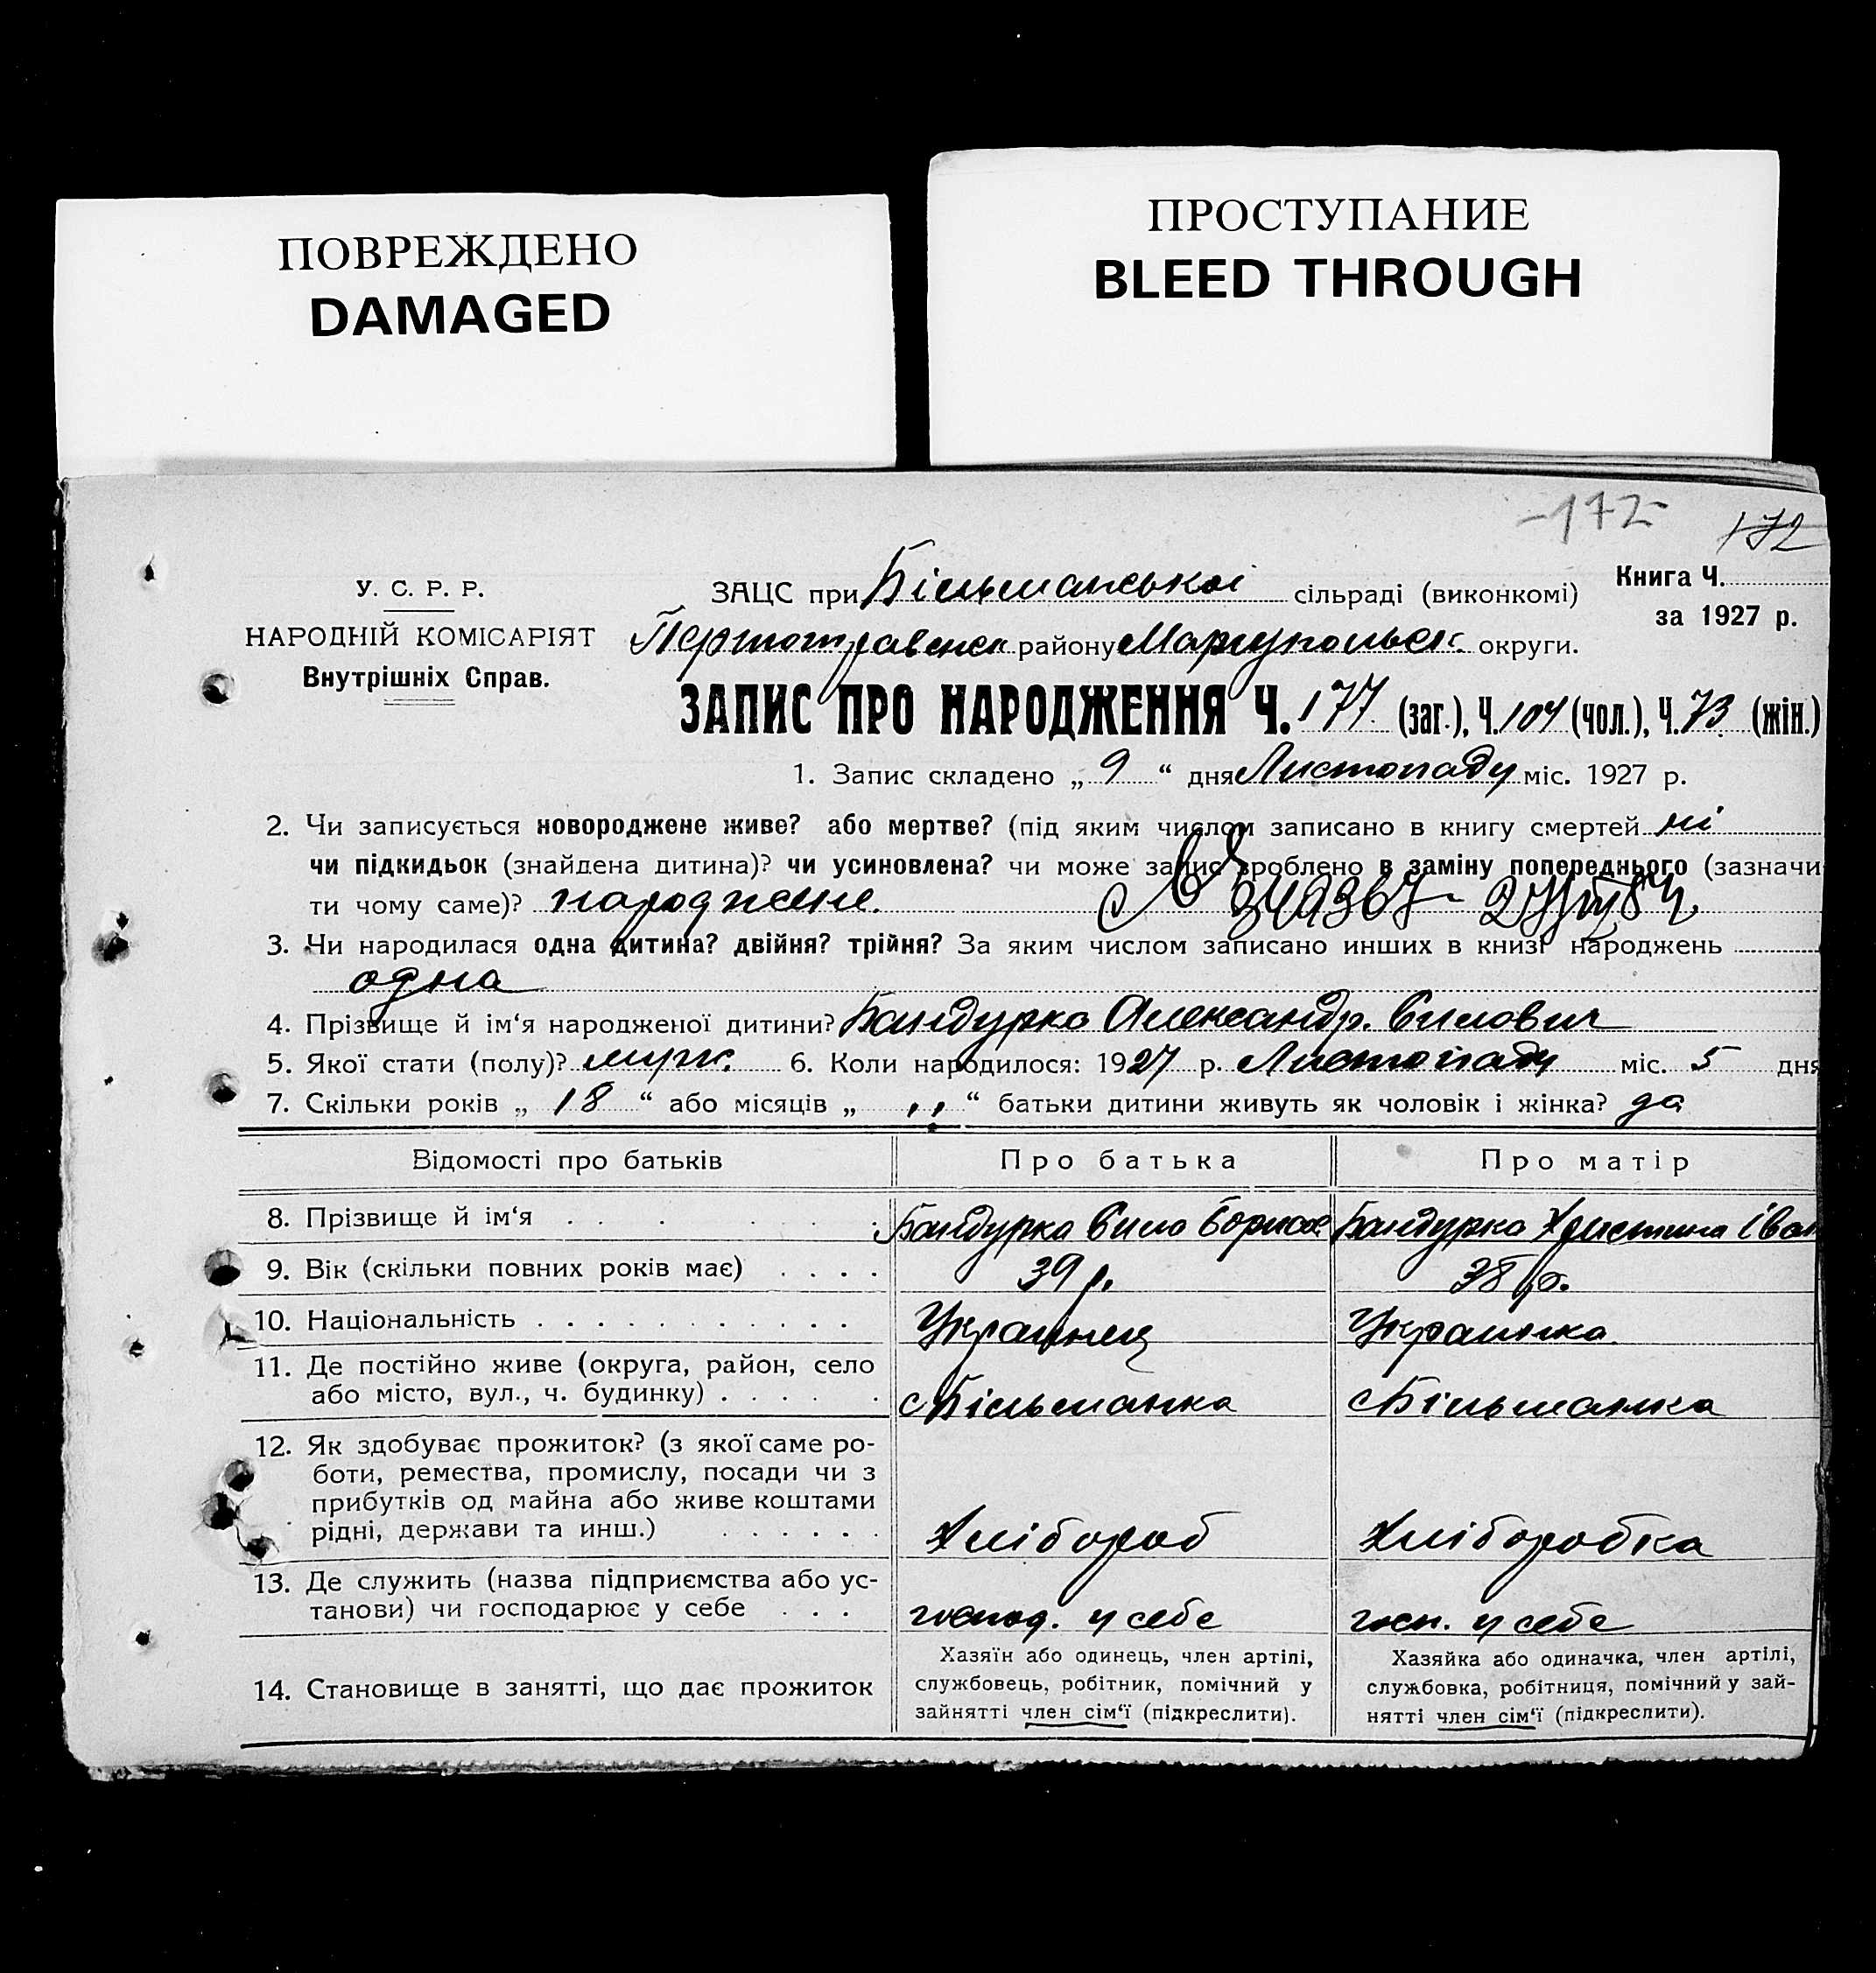 ПОВРЕЖДЕНО
DAMAGED
ПРОСТУПАНИЕ
BLEED THROUGH
-172-
172
У. С. Р. Р.
НАРОДНІЙ КОМІСАРІЯТ
Внутрішніх Справ.
ЗАЦС при Більманської сільраді (виконкомі)
районy Мариупольск. округи.
Книга Ч.
за 1927 р.
ЗАПИС ПРО НАРОДЖЕННЯ Ч. 177 (заг.), Ч. 104 (чол.), Ч. 73 (жін.)
1. Запис складено „ 9 “ дня Листопаду міс. 1927 р.
2. Чи записується новороджене живе? або мертве? (під яким числом записано в книгу смертей ні
чи підкидьок (знайдена дитина)? чи усиновлена? чи може запис зроблено в заміну попереднього (зазначи
ти чому саме)? народжене.
3. Чи народилася одна дитина? двійня? трійня? За яким числом записано инших в книзі народжень
одна
4. Прізвище й ім‘я народженої дитини? Бандурко Александр. Силович
5. Якої стати (полу)? муж. 6. Коли народилося: 1927 р. Листопаду міс. 5 дня
7. Скільки років „ 18 “ або місяців „ ,, “ батьки дитини живуть як чоловік і жінка? да
Відомості про батьків Про батька Про матір
8. Прізвище й ім‘я . . . . . . . Бандурка Сила Борисов Бандурка Християна Іван
9. Вік (скільки повних років має) . . . . 39 р. 38 р.
10. Національність . . . . . . . . . . . Украинец Украинка
11. Де постійно живе (округа, район, село
або місто, вул., ч. будинку) . . . . . . с Більманка с Більманка
12. Як здобуває прожиток? (з якої саме ро-
боти, ремества, промислу, посади чи з
прибутків од майна або живе коштами
рідні, держави та инш.) . . . . . . Хлібороб Хліборобка
13. Де служить (назва підприємства або ус-
танови) чи господарює у себе . . . господ. у себе госп. у себе
14. Становище в занятті, що дає прожиток
Хазяїн або одинець, член артілі,
службовець, робітник, помічний у
зайнятті член сім‘ї (підкреслити).
Хазяйка або одиначка, член артілі,
службовка, робітниця, помічний у зай-
нятті член сім‘ї (підкреслити).